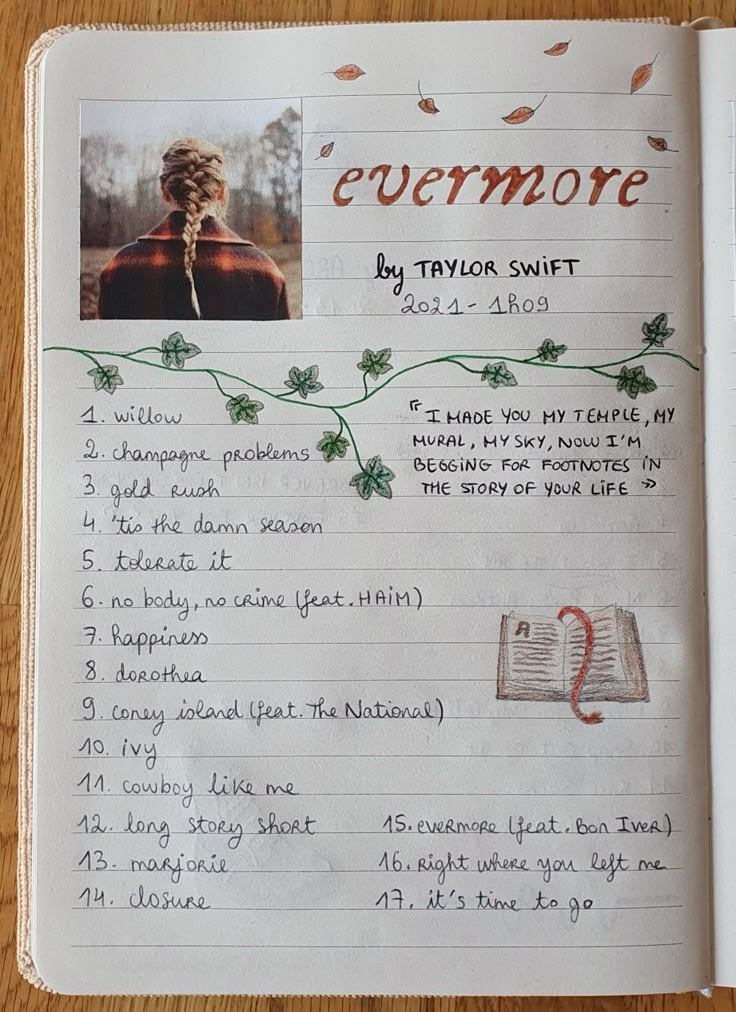 evermore
by TAYLOR SWIFT
2021 - 1h09
1. willow
2. champagne problems
3. gold rush
4. 'tis the damn season
5. tolerate it
6. no body, no crime (feat. HAIM)
7. happiness
8. dorothea
9. coney island (feat. The National)
10. ivy
11. cowboy like me
12. long story short
13. marjorie
14. closure
15. evermore (feat. Bon Iver)
16. right where you left me
17. it's time to go
"I MADE YOU MY TEMPLE, MY
MURAL, MY SKY, NOW I'M
BEGGING FOR FOOTNOTES IN
THE STORY OF YOUR LIFE »
A